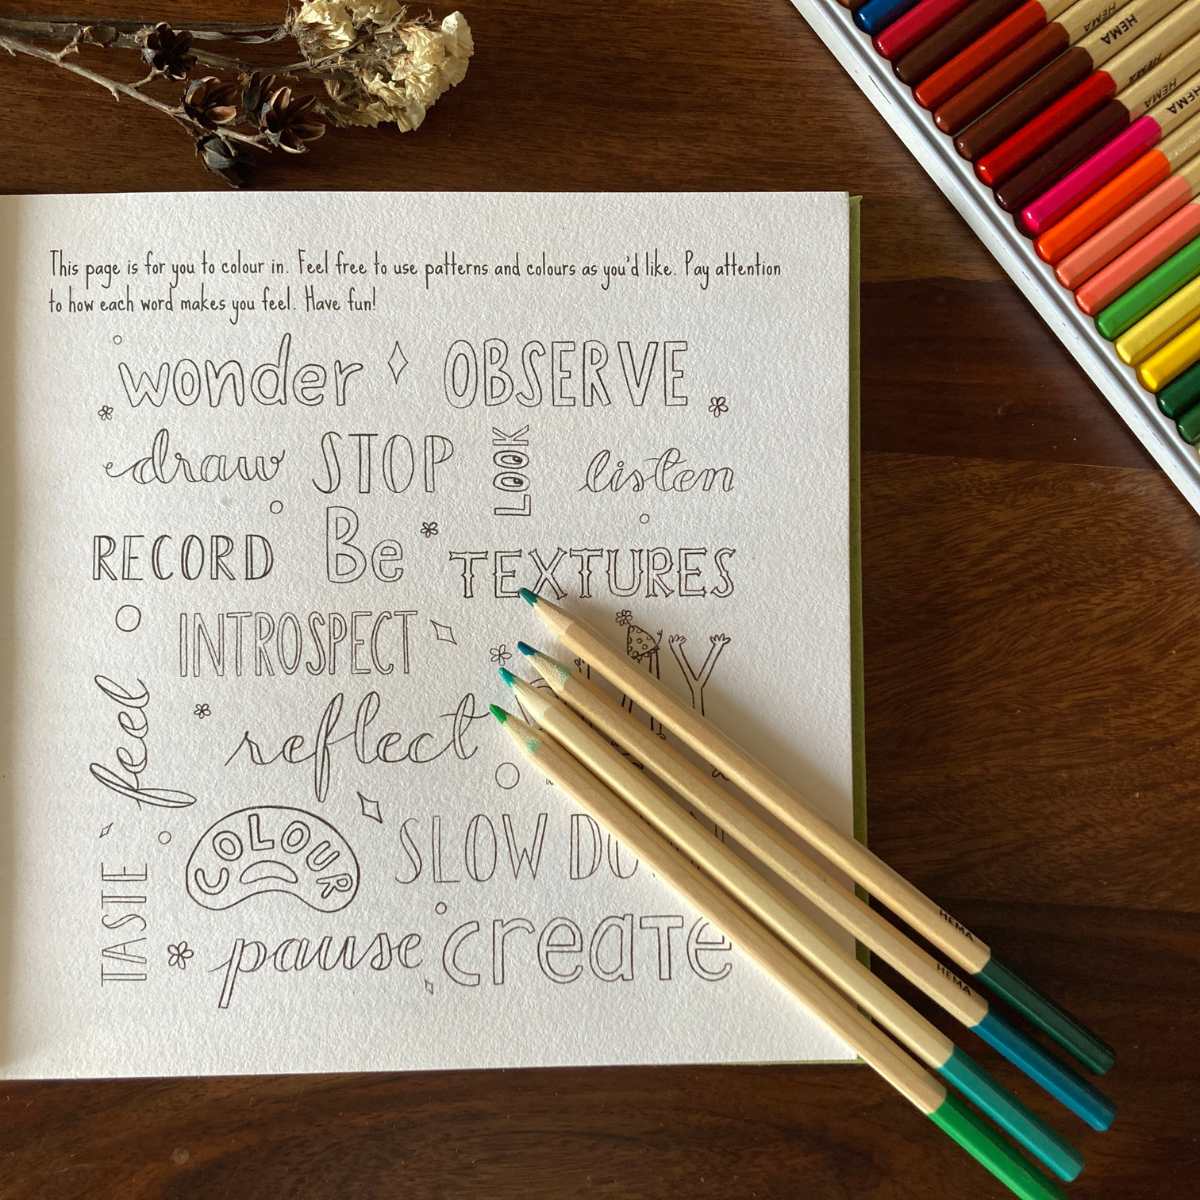 This page is for you to colour in. Feel free to use patterns and colours as you'd like. Pay attention
to how each word makes you feel. Have fun!
wonder OBSERVE
draw STOP LOOK listen
RECORD Be TEXTURES
INTROSPECT
feel reflect
COLOUR SLOW
TASTE pause create
HEMA
HEMA
HEMA
HEMA
HEMA
HEMA